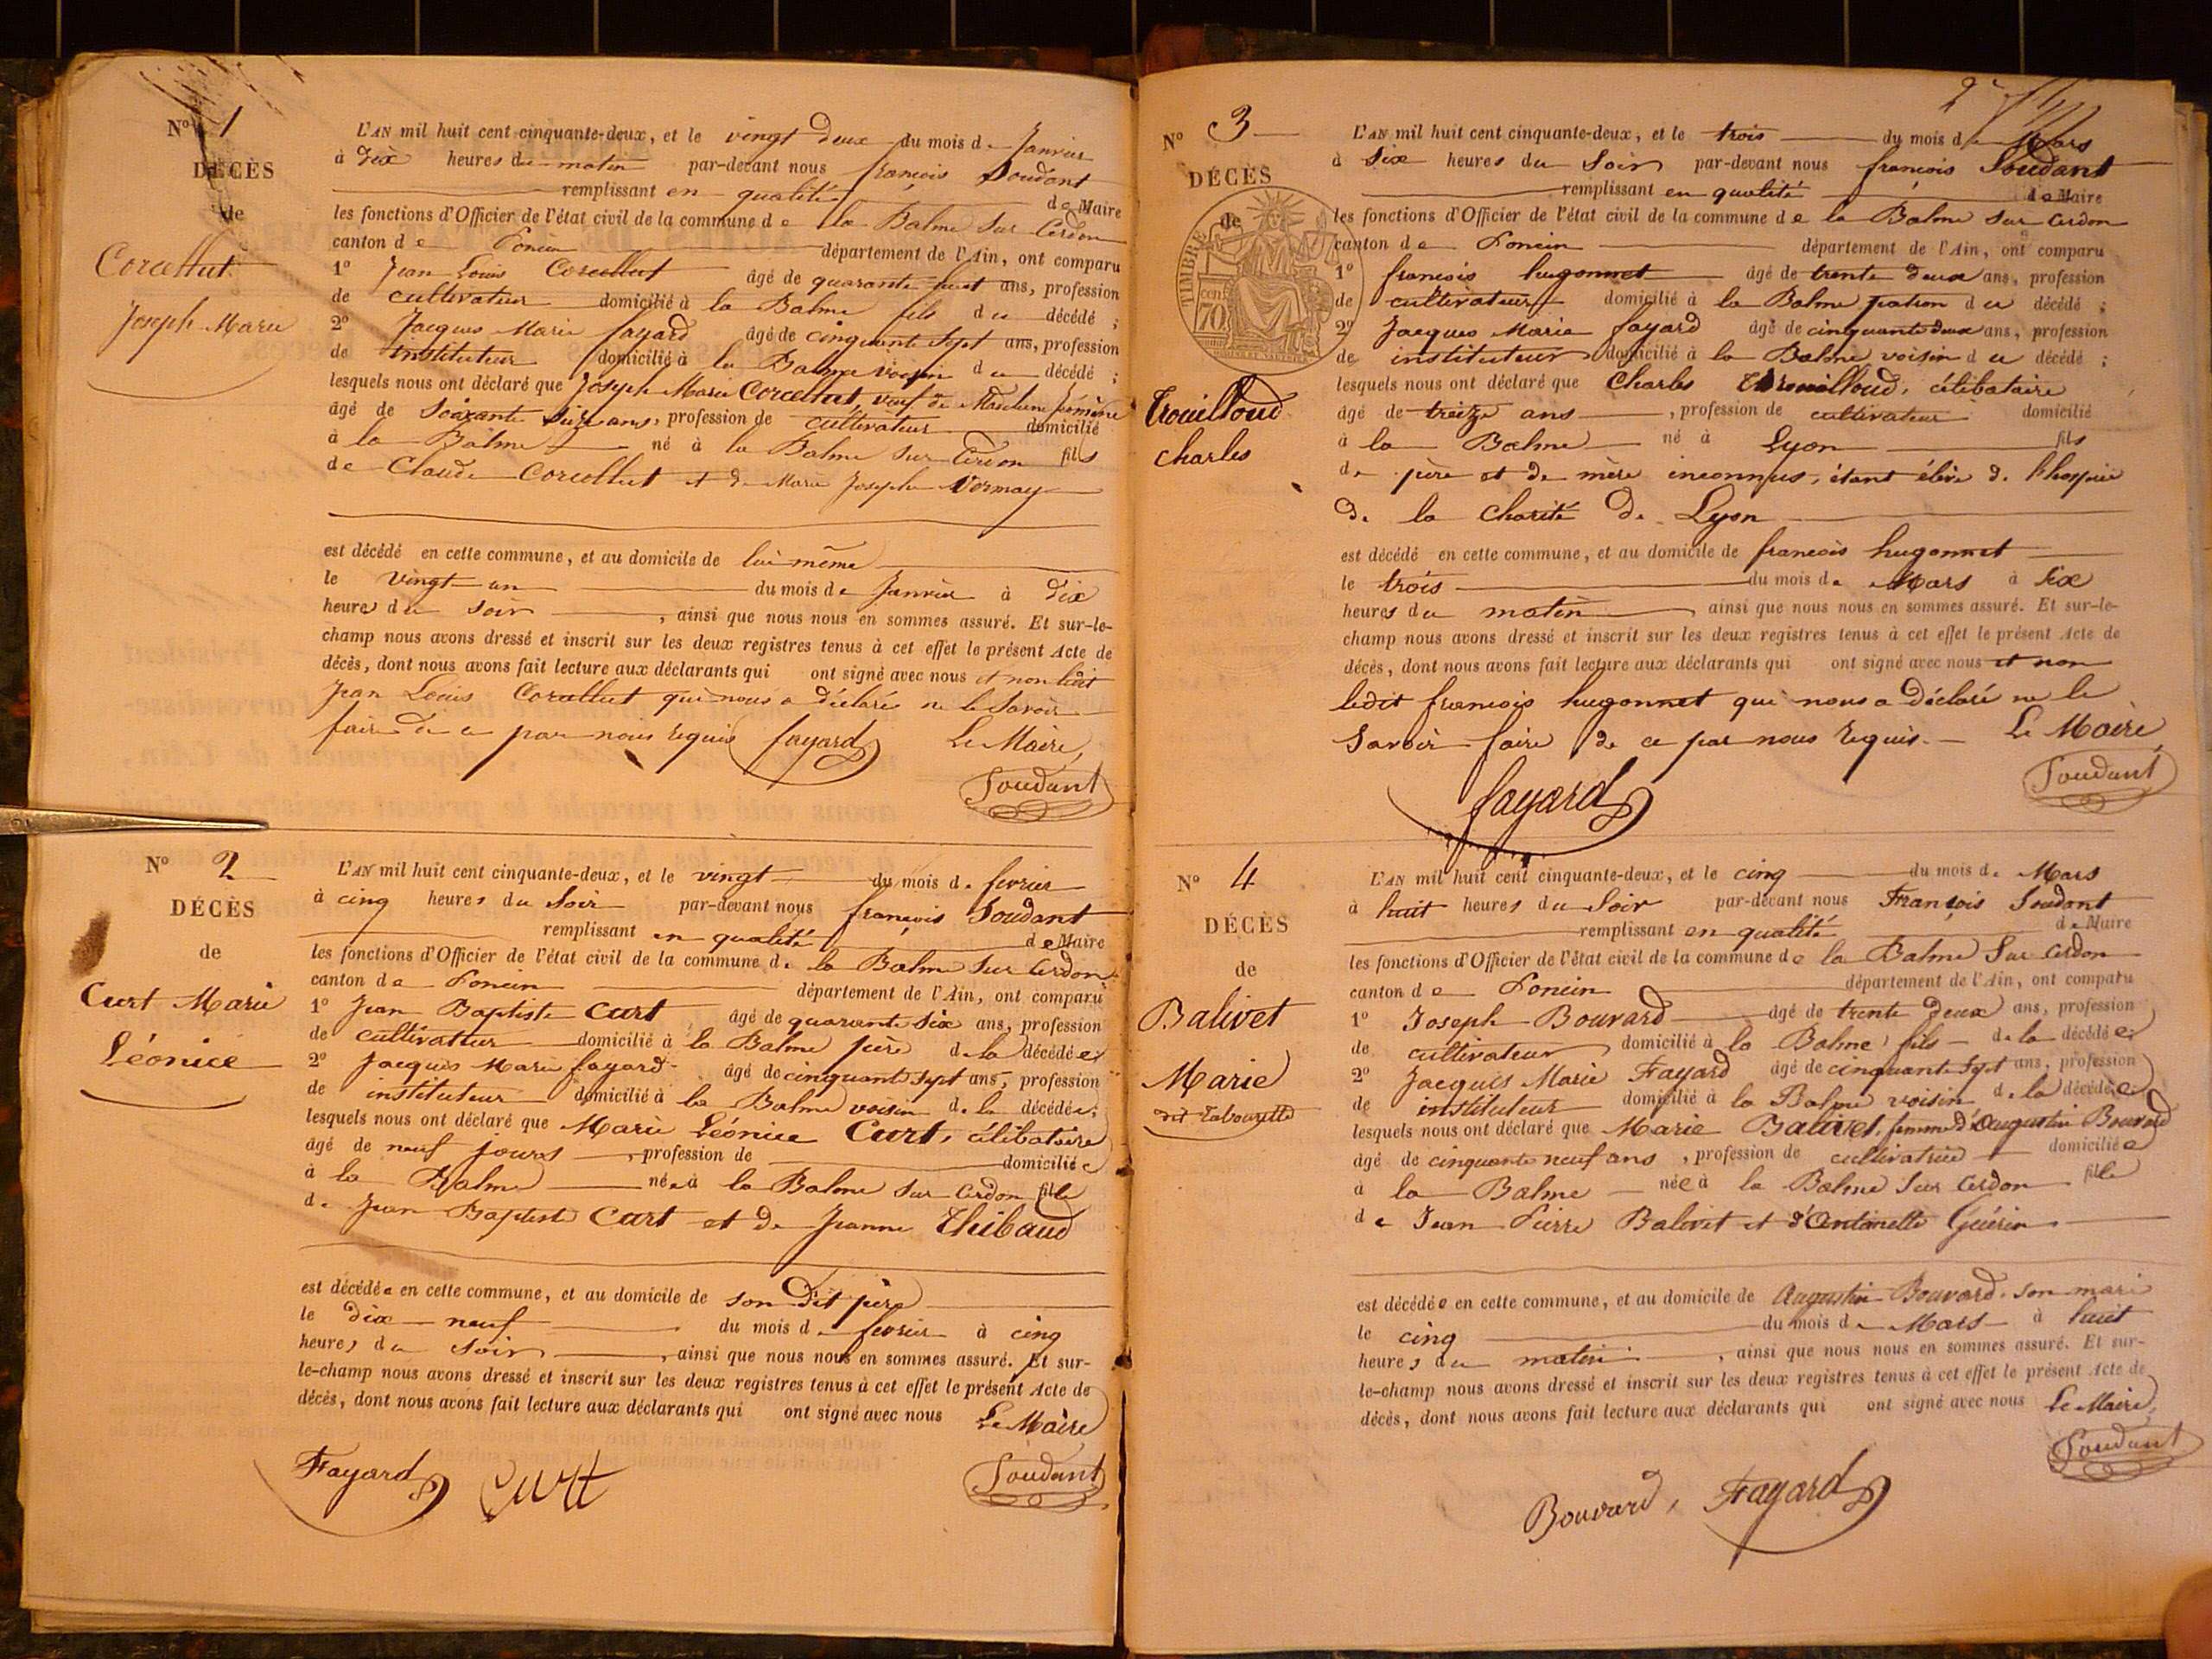 Nº 1
DÉCÈS
de
Corcettut
Joseph Marie
L'AN mil huit cent cinquante-deux, et le vingt deux du mois de Janvier
à dix heures du matin par-devant nous françois Soudant
remplissant en qualité de Maire
les fonctions d'Officier de l'état civil de la commune de la Balme sur Cerdon
canton de Poncin département de l'Ain, ont comparu
1º Jean Louis Corcettut âgé de quarante huit ans, profession
de cultivateur domicilié à la Balme fils du décédé ;
2º Jacques Marie fayard âgé de cinquante sept ans, profession
de instituteur domicilié à la Balme voisin du décédé ;
lesquels nous ont déclaré que Joseph Marie Corcettut, veuf de
âgé de Soixante ans, profession de cultivateur domicilié
à la Balme né à la Balme sur Cerdon fils
de Claude Corcettut et de Marie Joseph Vormay
est décédé en cette commune, et au domicile de lui même
le vingt un du mois de Janvier à dix
heures du soir , ainsi que nous nous en sommes assuré. Et sur-le-
champ nous avons dressé et inscrit sur les deux registres tenus à cet effet le présent Acte de
décès, dont nous avons fait lecture aux déclarants qui ont signé avec nous et non ledit
Jean Louis Corcettut qui nous a déclaré ne le Savoir
faire de ce par nous requis fayard Le Maire,
Soudant
Nº 2
DÉCÈS
de
Curt Marie
Léonice
L'AN mil huit cent cinquante-deux, et le vingt du mois de fevrier
à cinq heures du Soir par-devant nous françois Soudant
remplissant en qualité de Maire
les fonctions d'Officier de l'état civil de la commune de la Balme sur Cerdon
canton de Poncin département de l'Ain, ont comparu
1º Jean Baptiste Curt âgé de quarante six ans, profession
de cultivateur domicilié à la Balme père de la décédée ;
2º Jacques Marie fayard âgé de cinquante sept ans, profession
de instituteur domicilié à la Balme voisin de la décédée ;
lesquels nous ont déclaré que Marie Léonice Curt, célibataire
âgé de neuf jours , profession de domiciliée
à la Balme née à la Balme sur Cerdon fille
de Jean Baptiste Curt et de Jeanne Thibaud
est décédée en cette commune, et au domicile de son dit père
le dix-neuf du mois de fevrier à cinq
heures du soir , ainsi que nous nous en sommes assuré. Et sur-
le-champ nous avons dressé et inscrit sur les deux registres tenus à cet effet le présent Acte de
décès, dont nous avons fait lecture aux déclarants qui ont signé avec nous Le Maire,
Fayard Curt Soudant
2
Nº 3
DÉCÈS
de
TIMBRE
70 cent
Trouilloud
Charles
L'AN mil huit cent cinquante-deux, et le trois du mois de Mars
à Six heures du Soir par-devant nous françois Soudant
remplissant en qualité de Maire
les fonctions d'Officier de l'état civil de la commune de la Balme sur Cerdon
canton de Poncin département de l'Ain, ont comparu
1º françois hugonnet âgé de trente deux ans, profession
de cultivateur domicilié à la Balme patron du décédé ;
2º Jacques Marie fayard âgé de cinquante deux ans, profession
de instituteur domicilié à la Balme voisin du décédé ;
lesquels nous ont déclaré que Charles Trouilloud, célibataire
âgé de treize ans , profession de cultivateur domicilié
à la Balme né à Lyon fils
de père et de mère inconnus, étant élève de l'hospice
de la Charité de Lyon
est décédé en cette commune, et au domicile de francois hugonnet
le trois du mois de Mars à Six
heures du matin , ainsi que nous nous en sommes assuré. Et sur-le-
champ nous avons dressé et inscrit sur les deux registres tenus à cet effet le présent Acte de
décès, dont nous avons fait lecture aux déclarants qui ont signé avec nous et non
ledit francois hugonnet qui nous a déclaré ne le
Savoir faire de ce par nous requis. Le Maire,
fayard Soudant
Nº 4
DÉCÈS
de
Balivet
Marie
L'AN mil huit cent cinquante-deux, et le cinq du mois de Mars
à huit heures du Soir par-devant nous François Soudant
remplissant en qualité de Maire
les fonctions d'Officier de l'état civil de la commune de la Balme Sur Cerdon
canton de Poncin département de l'Ain, ont comparu
1º Joseph Bouvard âgé de trente deux ans, profession
de cultivateur domicilié à la Balme fils de la décédée ;
2º Jacques Marie Fayard âgé de cinquante sept ans, profession
de instituteur domicilié à la Balme voisin de la décédée ;
lesquels nous ont déclaré que Marie Balivet, femme d'Augustin Bouvard
âgé de cinquante neuf ans , profession de cultivatrice domiciliée
à la Balme née à la Balme Sur Cerdon fille
de Jean Pierre Balivet et d'Antoinette Guérin
est décédée en cette commune, et au domicile de Augustin Bouvard son mari
le cinq du mois de Mars à huit
heures du matin , ainsi que nous nous en sommes assuré. Et sur-
le-champ nous avons dressé et inscrit sur les deux registres tenus à cet effet le présent Acte de
décès, dont nous avons fait lecture aux déclarants qui ont signé avec nous Le Maire,
Soudant
Bouvard, Fayard